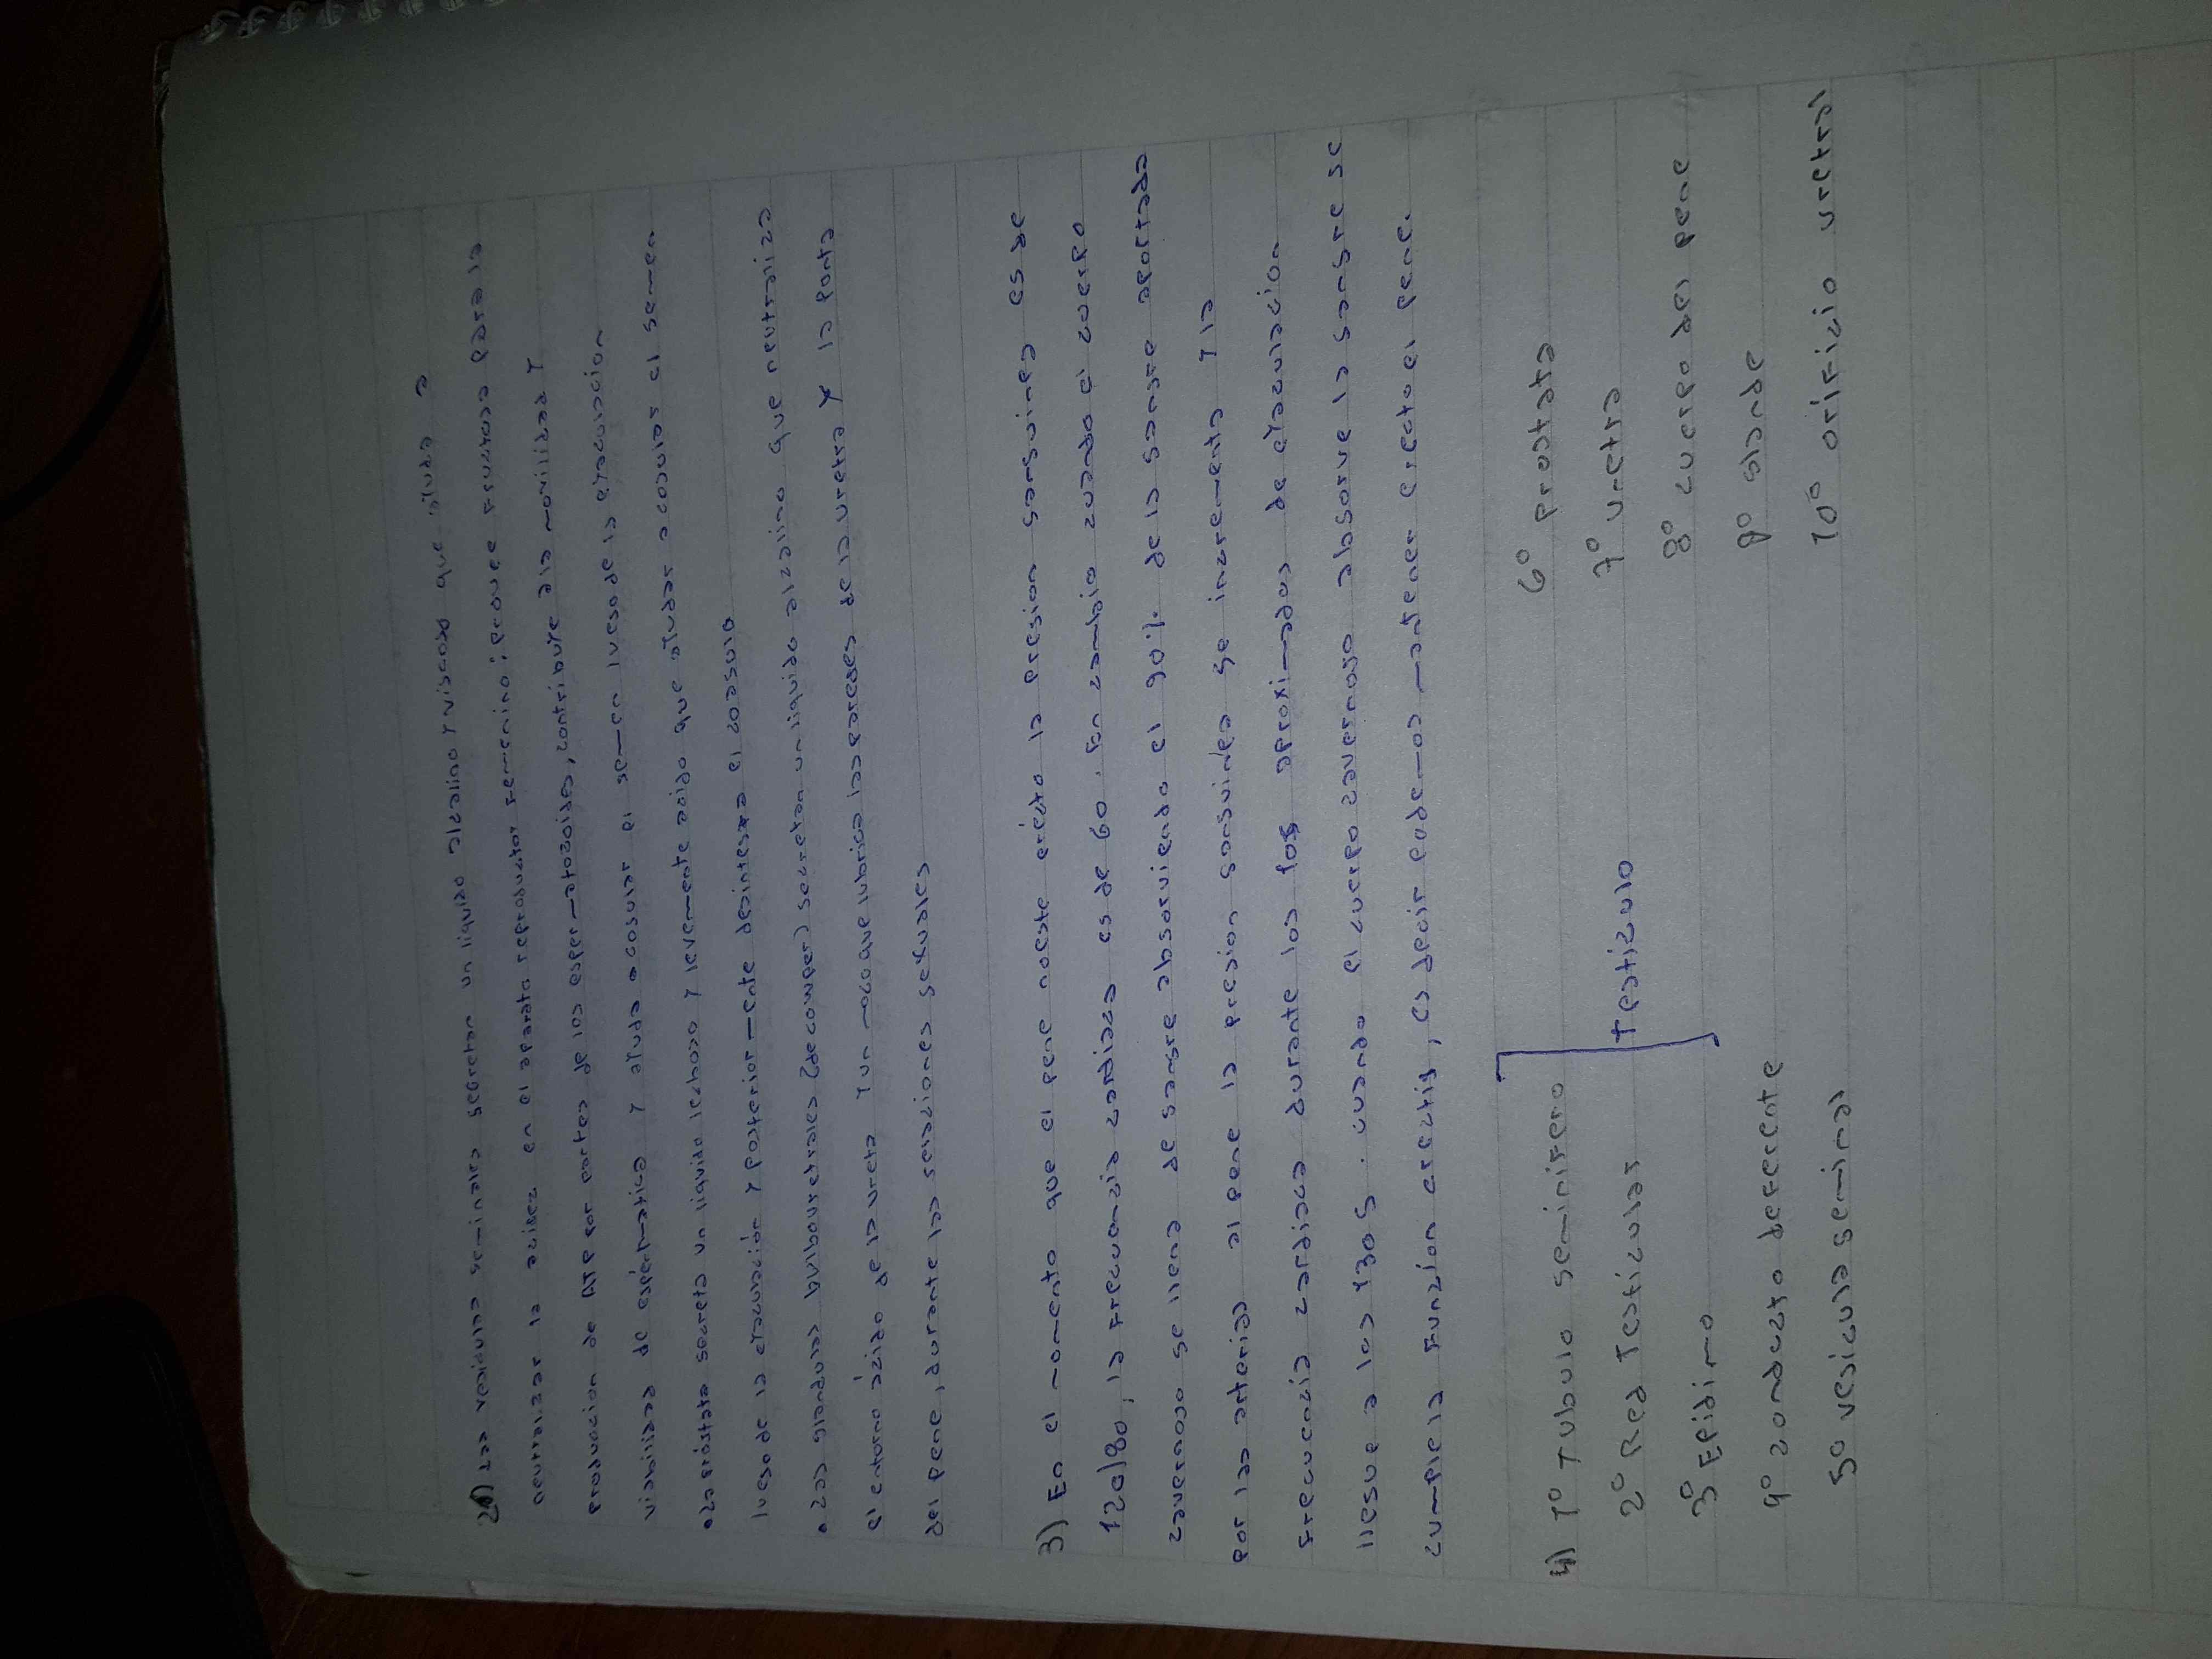 2) Las vesiculas seminales segregan un liquido alcalino y viscoso que ayuda a
neutralizar el acides en el aparato reproductor femenino; pone a fructosa para la
producion de ATP por partes de los espermatozoides, contribuye a la movilidad y
viabilidad de espermatica y ayuda a coagular el semen luego de la eyaculacion
• la prostata segrega un liquido lechoso y levemente acido que ayuda a coagular el semen
luego de la eyaculación y posteriormente descinteg el coagulo
• las glandulas bulbouretrales (de cowper) segregan un liquido alcalino que neutraliza
el entorno ácido de la uretra y un moco que lubrica las paredes de la uretra y la punta
del pene, durante las relaciones sexuales

3) En el momento que el pene no este erecto la presion sanguinea es de
120/80, la frecuencia cardiaca es de 60. En cambio cuando el cuerpo
cavernoso se llena de sangre absorviendo el 90% de la sangre aportada
por las arterias al pene la presion sanguinea se incrementa y la
frecuencia cardiaca durante los 80s aproximados de eyaculacion
llegue a los 130s. cuando el cuerpo cavernoso absorve la sangre se
cumple la funcion erectil, es decir podemos mantener erecto el pene.

4) 1° Tubulo seminifero
2° Red Testicular testiculo
3° Epidimo
4° conducto deferente
5° vesicula seminal
6° prostata
7° uretra
8° cuerpo del pene
9° glande
10° orificio uretral